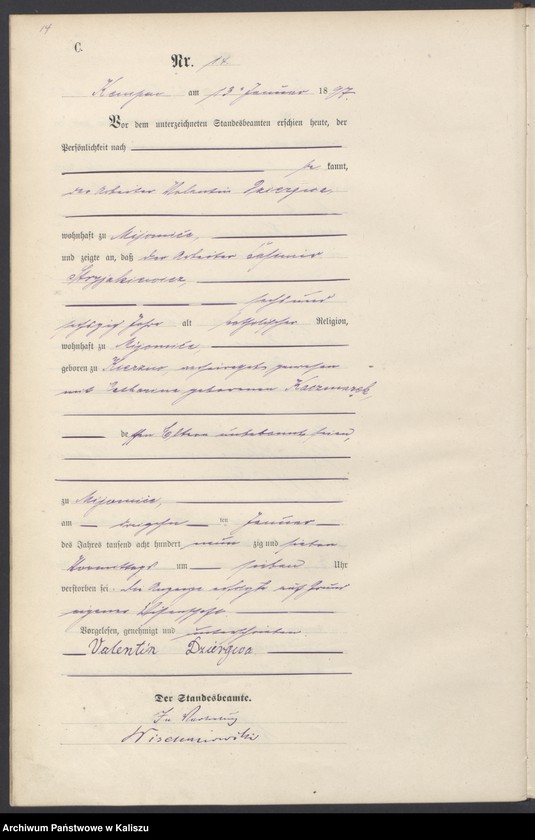 14
C.
Nr. 14.
Kempen am 13. Januar 1897.
Vor dem unterzeichneten Standesbeamten erschien heute, der
Persönlichkeit nach
be kannt,
der Arbeiter Valentin Dziergwa,
wohnhaft zu Mijomice,
und zeigte an, daß der Arbeiter Casimir
Stryjakiewicz,
sechsund
sechszig Jahr alt katholischer Religion,
wohnhaft zu Mijomice,
geboren zu verheirathet gewesen
mit Catharina geborenen Kaczmarek,
dessen Eltern unbekannt seien,
zu Mijomice,
am dreizehn ten Januar
des Jahres tausend acht hundert neun zig und sieben
Vormittags um sieben Uhr
verstorben sei. Die Anzeige erfolgte auf Grund
eigener Wissenschaft.
Vorgelesen, genehmigt und unterschrieben
Valentin Dziergwa
Der Standesbeamte.
In Vertretung
Archiwum Państwowe w Kaliszu